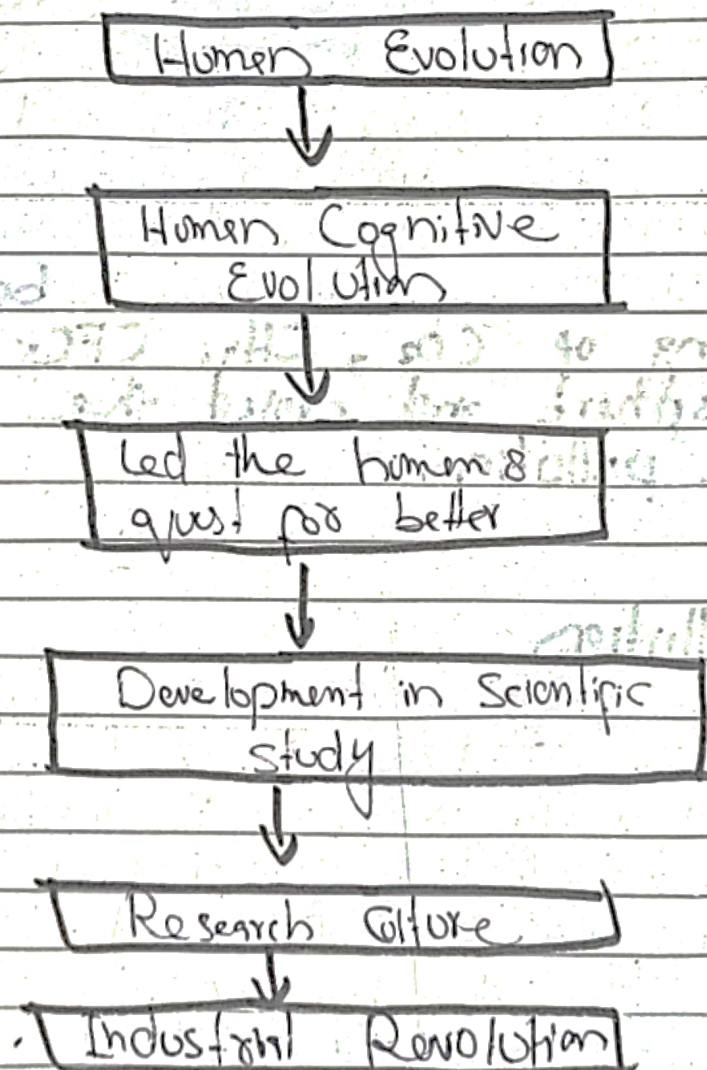 Human Evolution
Human Cognitive
Evolution
Led the human's
quest for better
Development in Scientific
study
Research Culture
Industrial Revolution